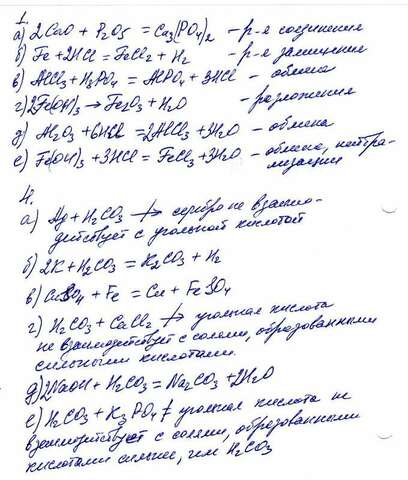 1.
а) 2CaO + P2O5 = Ca3(PO4)2 - р-я соединения
б) Fe + 2HCl = FeCl2 + H2 - р-я замещения
в) AlCl3 + H3PO4 = AlPO4 + 3HCl - обмена
г) 2Fe(OH)3 → Fe2O3 + H2O - разложения
д) Al2O3 + 6HCl = 2AlCl3 + 3H2O - обмена
е) Fe(OH)3 + 3HCl = FeCl3 + 3H2O - обмена, нейтра-
лизации
4.
а) Ag + H2CO3 ↛ серебро не взаимо-
действует с угольной кислотой
б) 2K + H2CO3 = K2CO3 + H2
в) CuSO4 + Fe = Cu + FeSO4
г) H2CO3 + CaCl2 ↛ угольная кислота
не взаимодействует с солями, образованными
сильными кислотами.
д) 2NaOH + H2CO3 = Na2CO3 + 2H2O
е) H2CO3 + K3PO4 ≠ угольная кислота не
взаимодействует с солями, образованными
кислотами сильнее, чем H2CO3